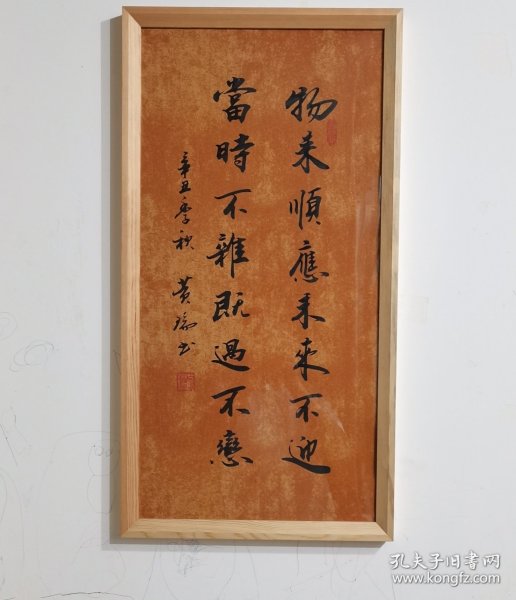 物来順應未來不迎
當時不雜既過不戀
辛丑季秋 黄瑜书
孔夫子旧书网
www.kongfz.com